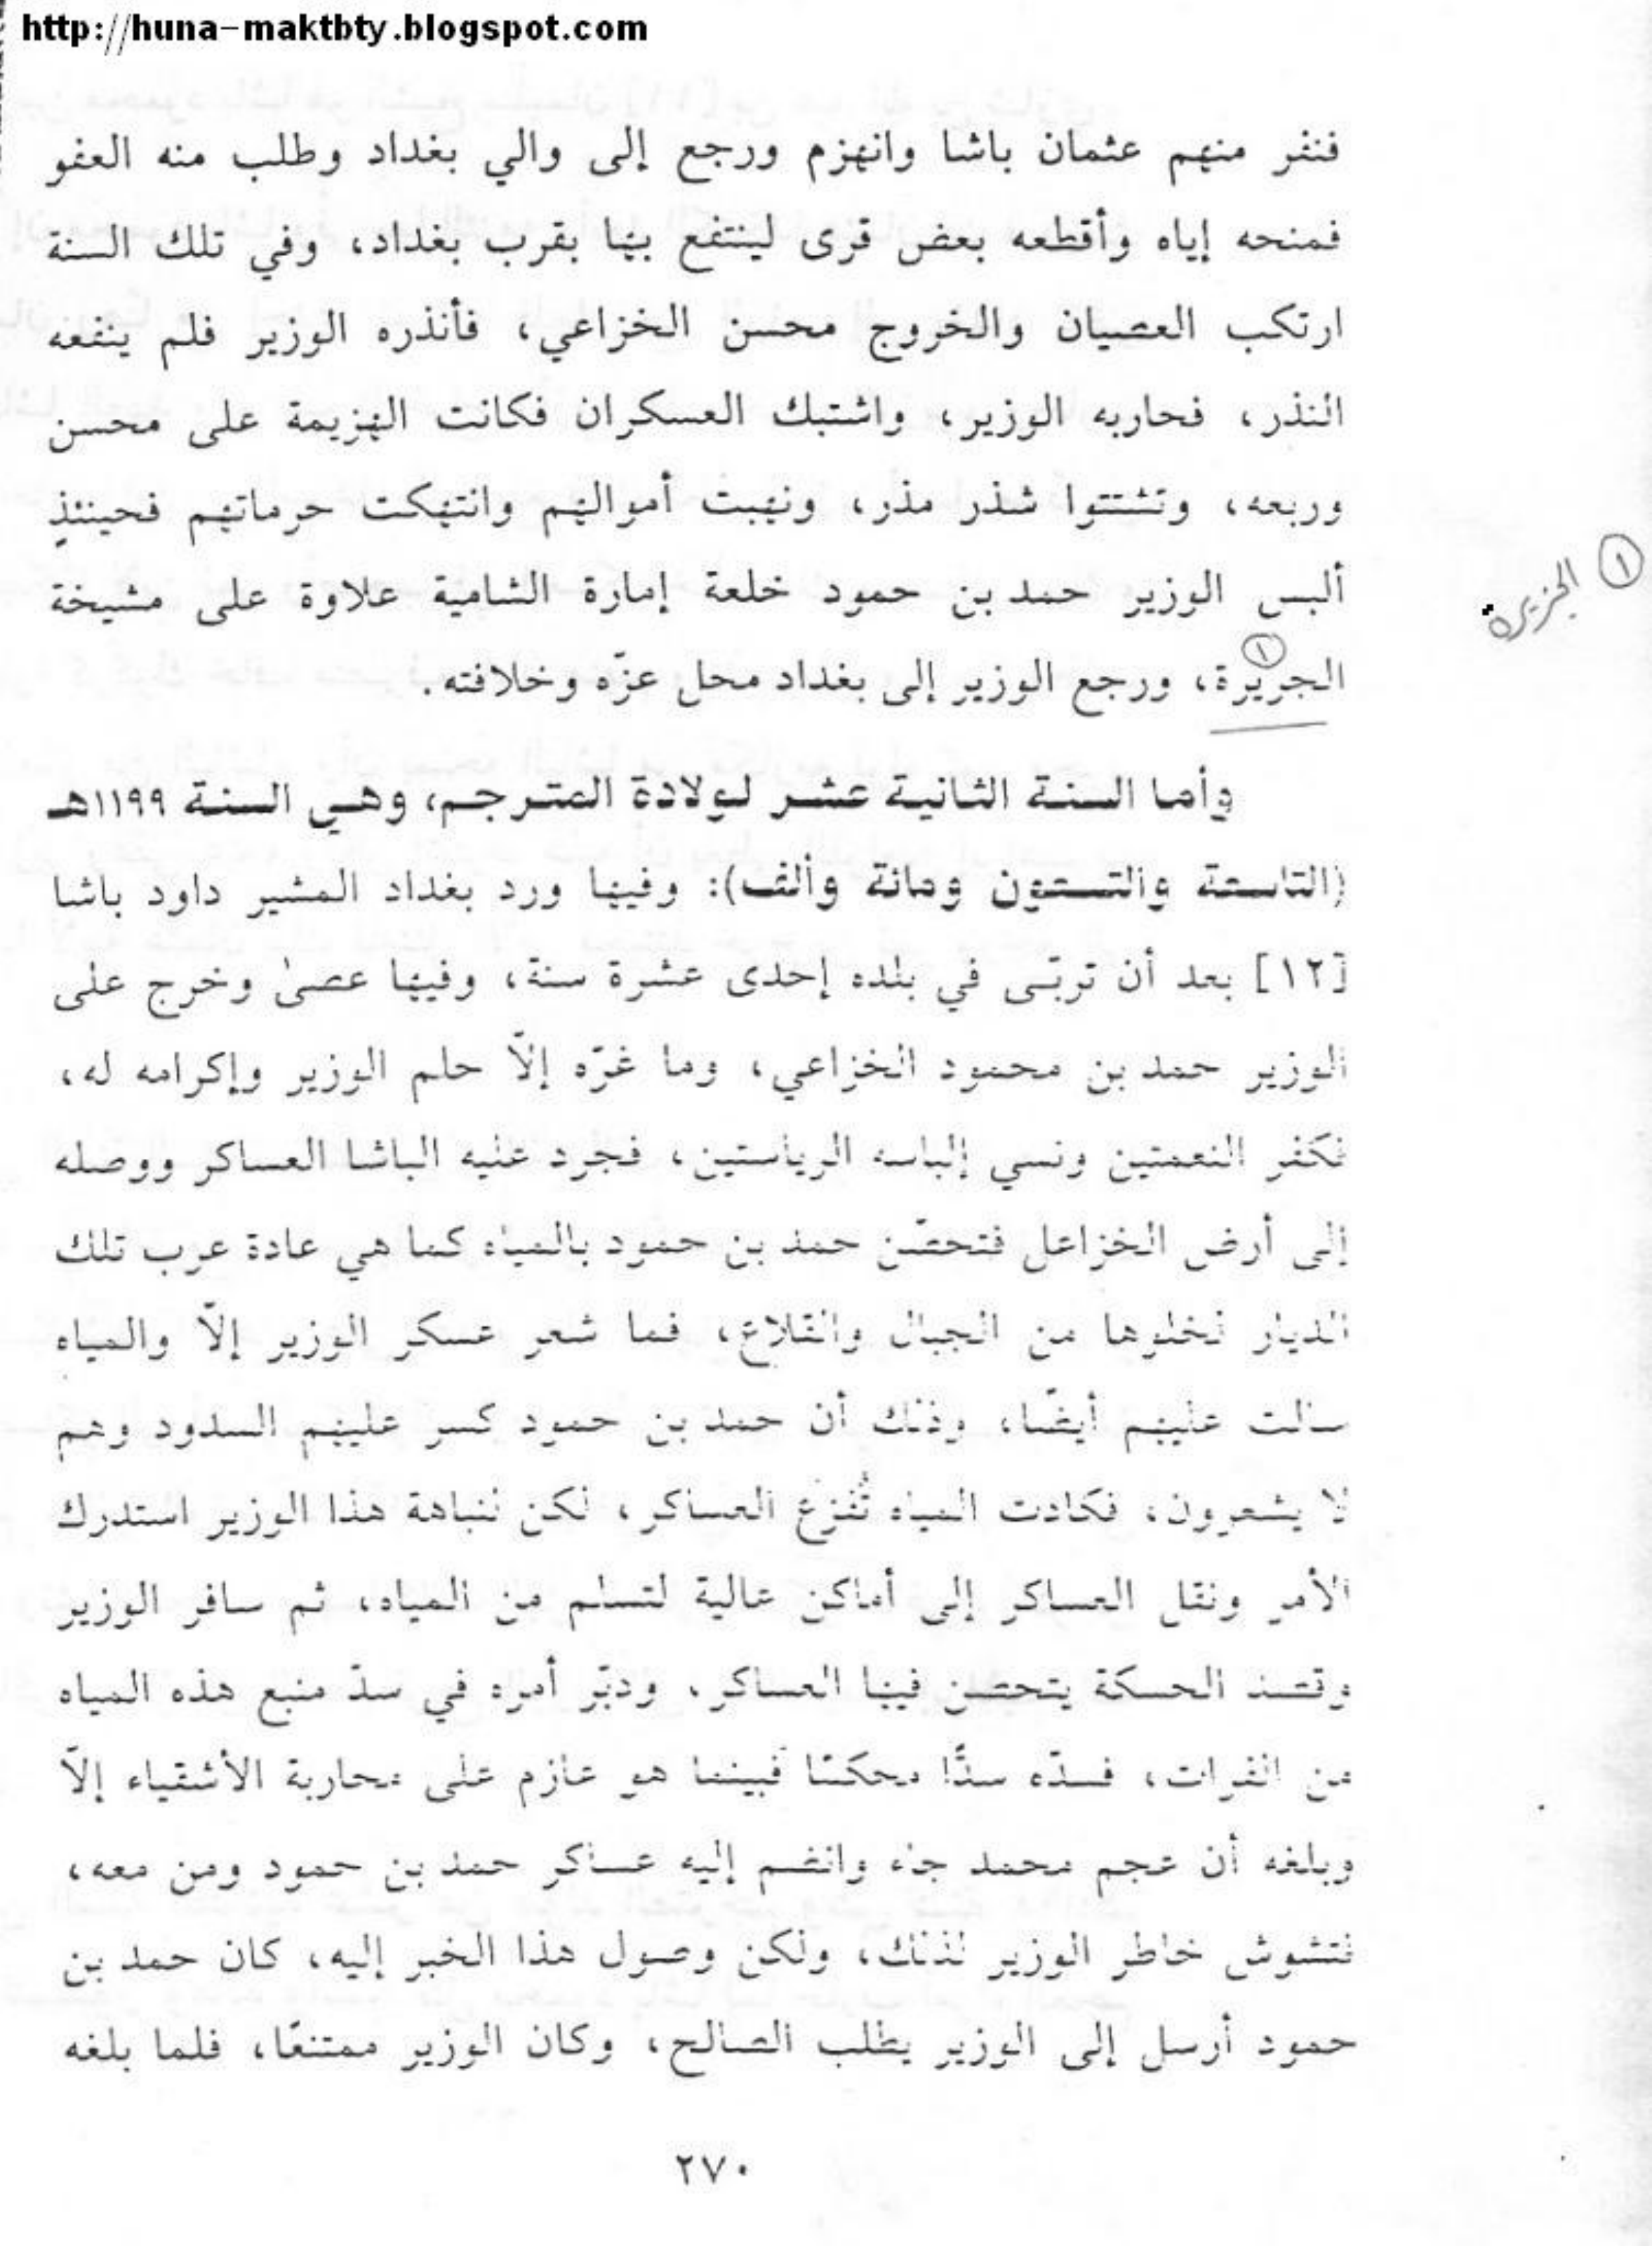 http://huna-maktbty.blogspot.com
فنفر منهم عثمان باشا وانهزم ورجع إلى والي بغداد وطلب منه العفو
فمنحه إياه وأقطعه بعض قرى لينتفع بها بقرب بغداد، وفي تلك السنة
ارتكب العصيان والخروج محسن الخزاعي، فأنذره الوزير فلم ينفعه
النذر، فحاربه الوزير، واشتبك العسكران فكانت الهزيمة على محسن
وربعه، وتشتتوا شذر مذر، ونهبت أموالهم وانتهكت حرماتهم فحينئذٍ
ألبس الوزير حمد بن حمود خلعة إمارة الشامية علاوة على مشيخة
١ الجزيرة
١
الجريرة، ورجع الوزير إلى بغداد محل عزّه وخلافته.
وأما السنة الثانية عشر لولادة المترجم، وهي السنة ١١٩٩هـ
(التاسعة والتسعون ومائة وألف): وفيها ورد بغداد المشير داود باشا
[١٢] بعد أن تربّى في بلده إحدى عشرة سنة، وفيها عصىٰ وخرج على
الوزير حمد بن محمود الخزاعي، وما غرّه إلاّ حلم الوزير وإكرامه له،
فكفر النعمتين ونسي إلباسه الرياستين، فجرد عليه الباشا العساكر ووصله
إلى أرض الخزاعل فتحصّن حمد بن حمود بالمياه كما هي عادة عرب تلك
الديار لخلوها من الجبال والقلاع، فما شعر عسكر الوزير إلاّ والمياه
سالت عليهم أيضًا، وذلك أن حمد بن حمود كسر عليهم السدود وهم
لا يشعرون، فكادت المياه تُفزع العساكر، لكن لنباهة هذا الوزير استدرك
الأمر ونقل العساكر إلى أماكن عالية لتسلم من المياه، ثم سافر الوزير
وقصد الحسكة يتحصن فيها العساكر، ودبّر أمره في سدّ منبع هذه المياه
من الفرات، فسدّه سدًّا محكمًا فبينما هو عازم على محاربة الأشقياء إلاّ
وبلغه أن عجم محمد جاء وانضم إليه عساكر حمد بن حمود ومن معه،
فتشوش خاطر الوزير لذلك، ولكن وصول هذا الخبر إليه، كان حمد بن
حمود أرسل إلى الوزير يطلب الصالح، وكان الوزير ممتنعًا، فلما بلغه
٢٧٠